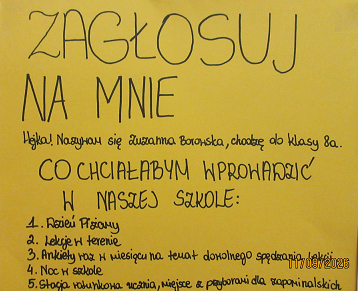 ZAGŁOSUJ
NA MNIE
Hejka! Nazywam się Zuzanna Borowska, chodzę do klasy 8a.
CO CHCIAŁABYM WPROWADZIĆ
W NASZEJ SZKOLE:
1. Dzień Piżamy
2. Lekcje w terenie
3. Ankiety raz w miesiącu na temat dowolnego spędzania lekcji
4. Noc w szkole
5. Stacja ratunkowa ucznia, miejsce z przyborami dla zapominalskich